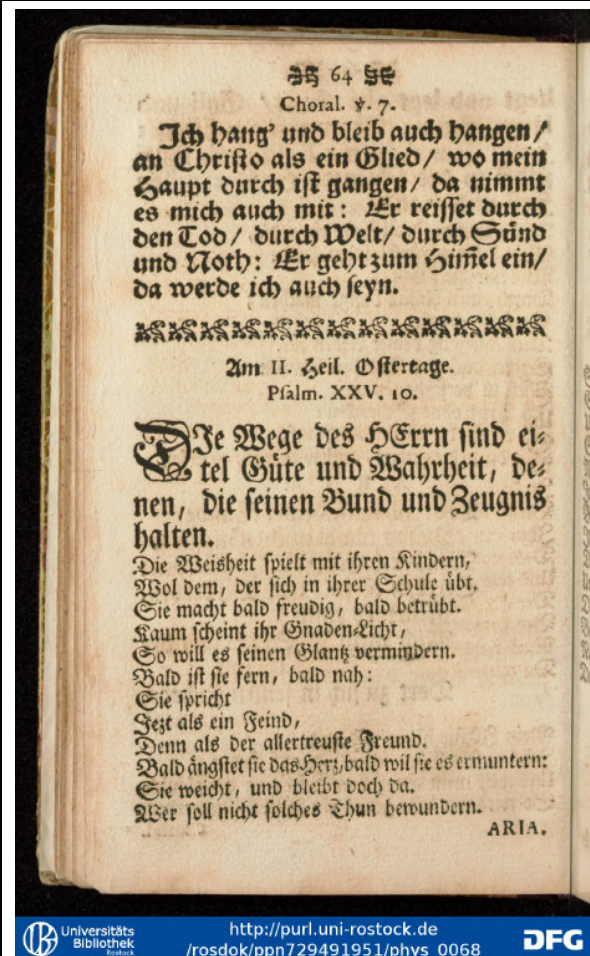 64
Choral. ℣. 7.
Ich hang' und bleib auch hangen/
an Christo als ein Glied/ wo mein
Haupt durch ist gangen/ da nimmt
es mich auch mit: Er reisset durch
den Tod/ durch Welt/ durch Sünd
und Noth: Er geht zum Him̃el ein/
da werde ich auch seyn.
Am II. Heil. Ostertage.
Psalm. XXV. 10.
DIe Wege des HErrn sind ei-
tel Güte und Wahrheit, de-
nen, die seinen Bund und Zeugnis
halten.
Die Weisheit spielt mit ihren Kindern,
Wol dem, der sich in ihrer Schule übt.
Sie macht bald freudig, bald betrübt.
Kaum scheint ihr Gnaden-Licht,
So will es seinen Glantz vermindern.
Bald ist sie fern, bald nah:
Sie spricht
Jezt als ein Feind,
Denn als der allertreuste Freund.
Bald ängstet sie das Herz, bald wil sie es ermuntern:
Sie weicht, und bleibt doch da.
Wer soll nicht solches Thun bewundern.
ARIA.
Universitäts
Bibliothek
Rostock
http://purl.uni-rostock.de
/rosdok/ppn729491951/phys_0068
DFG